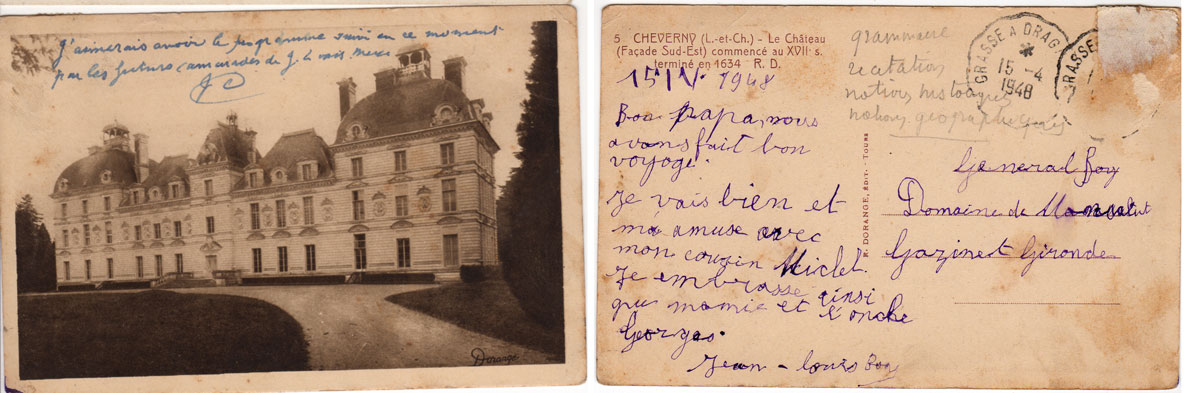 J'aimerais avoir le programme suivi en ce moment
par les futurs camarades de J. L. soit Merci
Dorange
5. CHEVERNY (L.-et-Ch.) - Le Château
(Façade Sud-Est) commencé au XVII s.
terminé en 1634 R. D.
15 IV 1948
Bon papa, nous
avons fait bon
voyage.
Je vais bien et
m'a amuse avec
mon cousin Michel.
Je embrasse ainsi
que mamie et l'oncle
Georges.
Jean-Louis Boy
grammaire
recitation
notions historiques
notions geographiques
GRASSE A DRAG
15 -4
1948
GRASSE
R. DORANGE, ÉDIT. - TOURS
General Boy
Domaine de
Gazinet Gironde